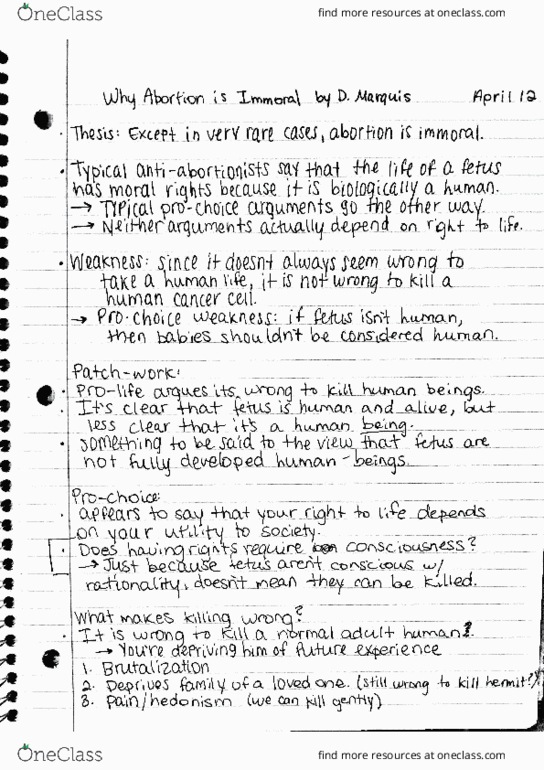 OneClass find more resources at oneclass.com
Why Abortion is Immoral by D. Marquis April 12
· Thesis: Except in very rare cases, abortion is immoral.
· Typical anti-abortionists say that the life of a fetus
has moral rights because it is biologically a human.
→ Typical pro-choice arguments go the other way.
→ Neither arguments actually depend on right to life.
· Weakness: since it doesnt always seem wrong to
take a human life, it is not wrong to kill a
human cancer cell.
→ Pro-choice weakness: if fetus isn't human,
then babies shouldn't be considered human.
Patch-work:
· Pro-life argues its wrong to kill human beings.
· It's clear that fetus is human and alive, but
less clear that it's a human being.
· something to be said to the view that fetus are
not fully developed human-beings.
Pro-choice:
· appears to say that your right to life depends
on your utility to society.
· Does having rights require consciousness?
→ Just because fetus aren't conscious w/
rationality, doesn't mean they can be killed.
What makes killing wrong?
· It is wrong to kill a normal adult human?
→ You're depriving him of future experience
1. Brutalization
2. Deprives family of a loved one. (still wrong to kill hermit?)
3. Pain/hedonism (we can kill gently)
OneClass find more resources at oneclass.com